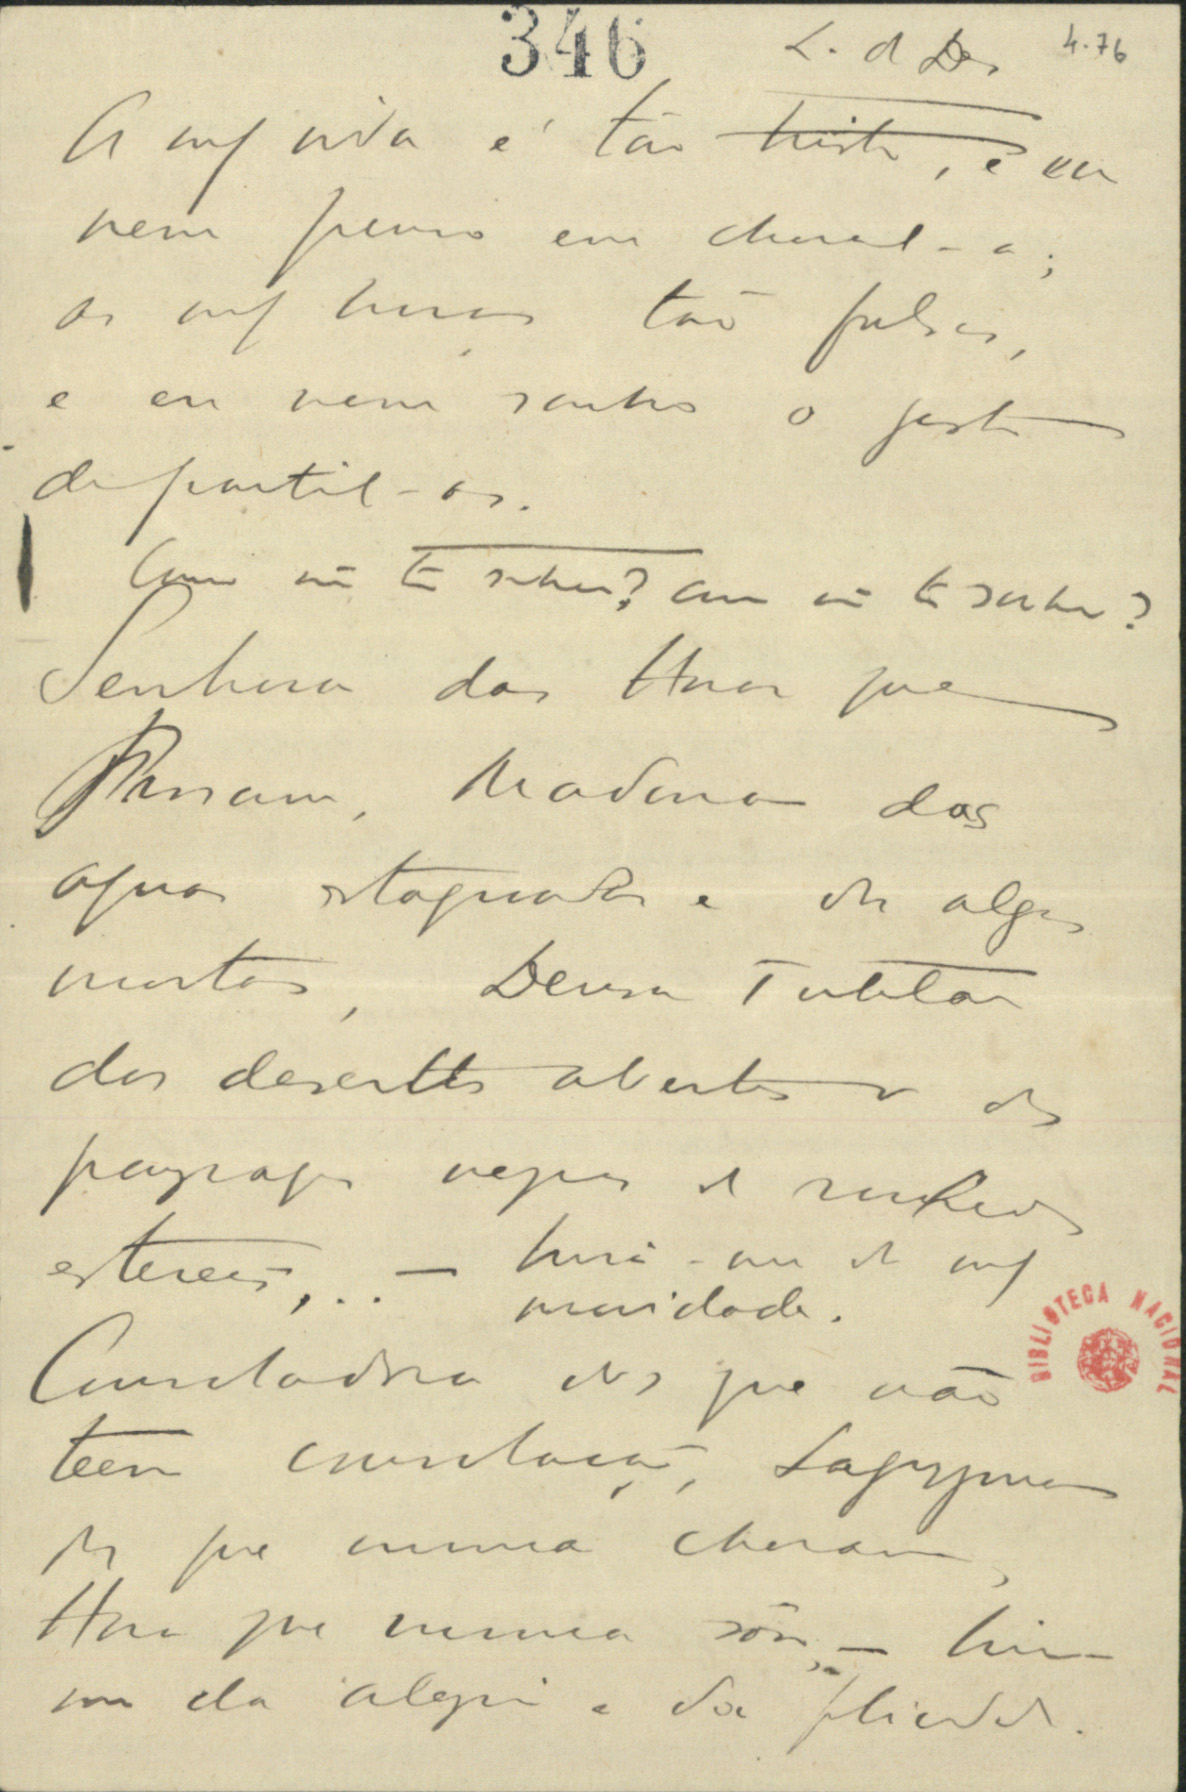 346
L. do Des
4-76
A m/ vida é tão triste, e eu
nem penso em choral-a;
as m/ horas tão falsas,
e eu nem sonho o gesto
de partil-as.
Como não te sonhar? Como não te sonhar?
Senhora das Horas que
Passam, Madona das
aguas estagnadas e das algas
mortas, Deusa Tutelar
dos desertos abertos e das
paysagens negras de rochedos
estereis, .. — livra-me da m/
mocidade.
Consoladora dos que não
teem consolação, Lagryma
dos que nunca choram,
Hora que nunca sôa, — livra-
me da alegria e da felicidade.
BIBLIOTECA NACIONAL